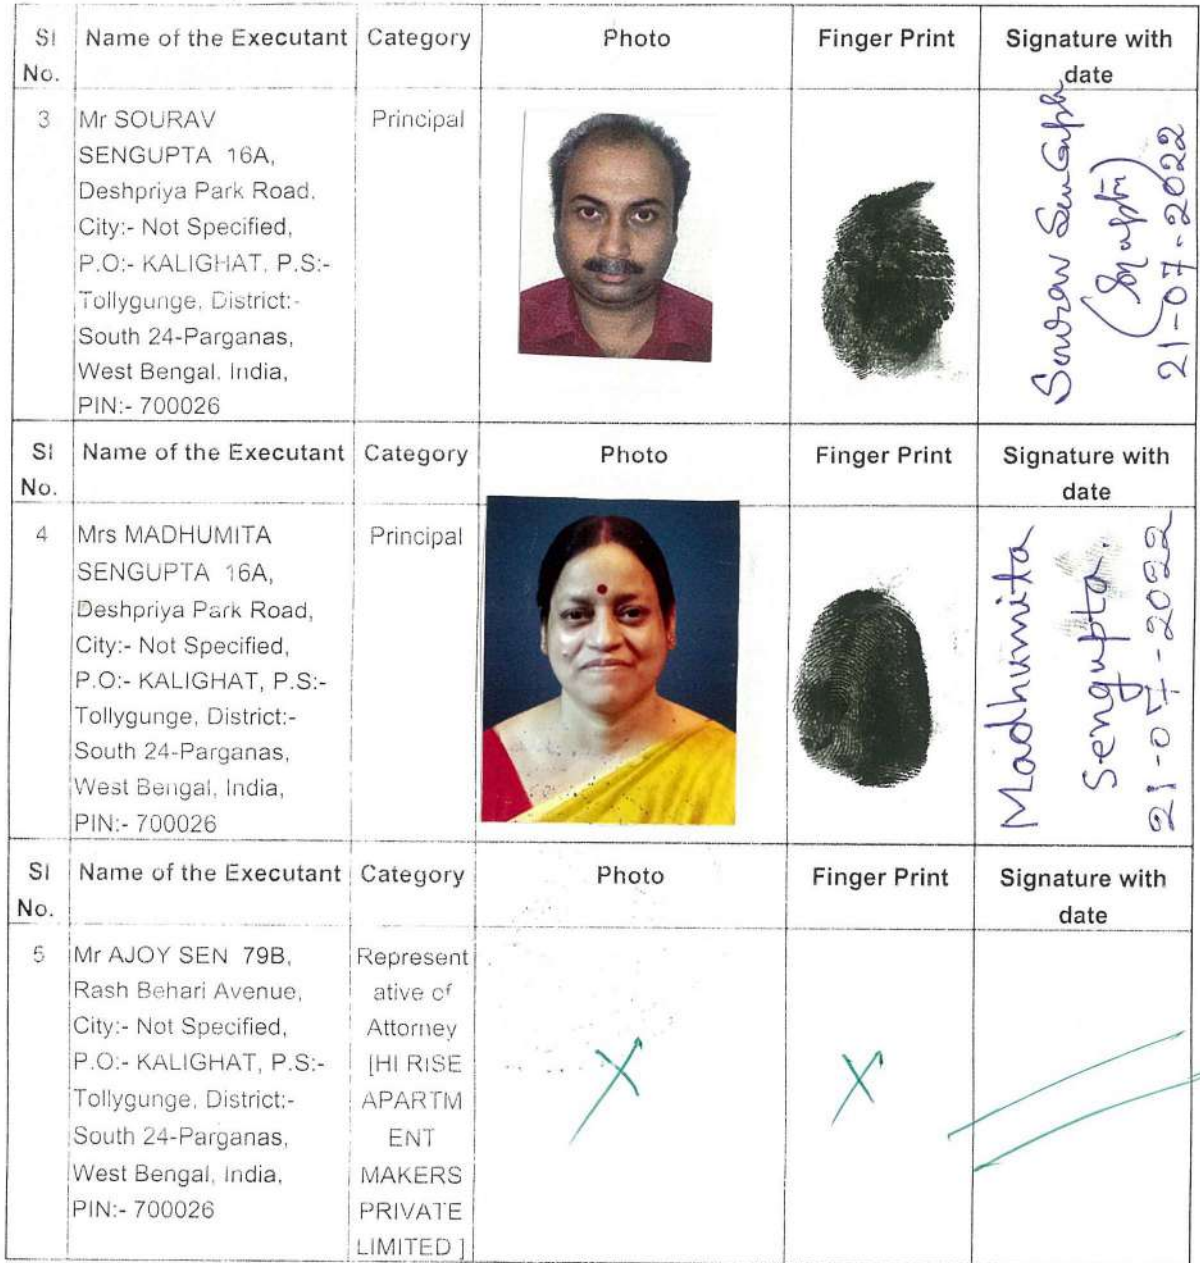 Sl No. Name of the Executant Category Photo Finger Print Signature with date
3 Mr SOURAV Principal
SENGUPTA 16A,
Deshpriya Park Road,
City:- Not Specified,
P.O:- KALIGHAT, P.S:-
Tollygunge, District:-
South 24-Parganas,
West Bengal, India,
PIN:- 700026
Sourav SenGupta
(Gupta)
21-07-2022
Sl No. Name of the Executant Category Photo Finger Print Signature with date
4 Mrs MADHUMITA Principal
SENGUPTA 16A,
Deshpriya Park Road,
City:- Not Specified,
P.O:- KALIGHAT, P.S:-
Tollygunge, District:-
South 24-Parganas,
West Bengal, India,
PIN:- 700026
Madhumita
Sengupta.
21-07-2022
Sl No. Name of the Executant Category Photo Finger Print Signature with date
5 Mr AJOY SEN 79B,
Rash Behari Avenue,
City:- Not Specified,
P.O:- KALIGHAT, P.S:-
Tollygunge, District:-
South 24-Parganas,
West Bengal, India,
PIN:- 700026
Represent
ative of
Attorney
[HI RISE
APARTM
ENT
MAKERS
PRIVATE
LIMITED ]